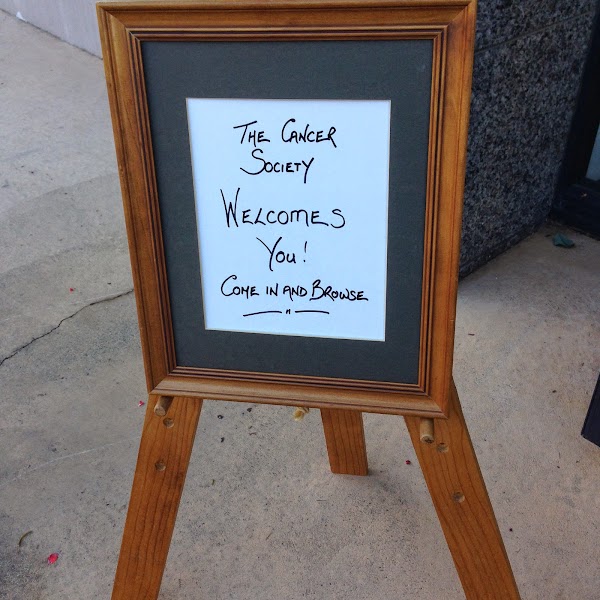 The Cancer
Society
Welcomes
You!
Come in and Browse